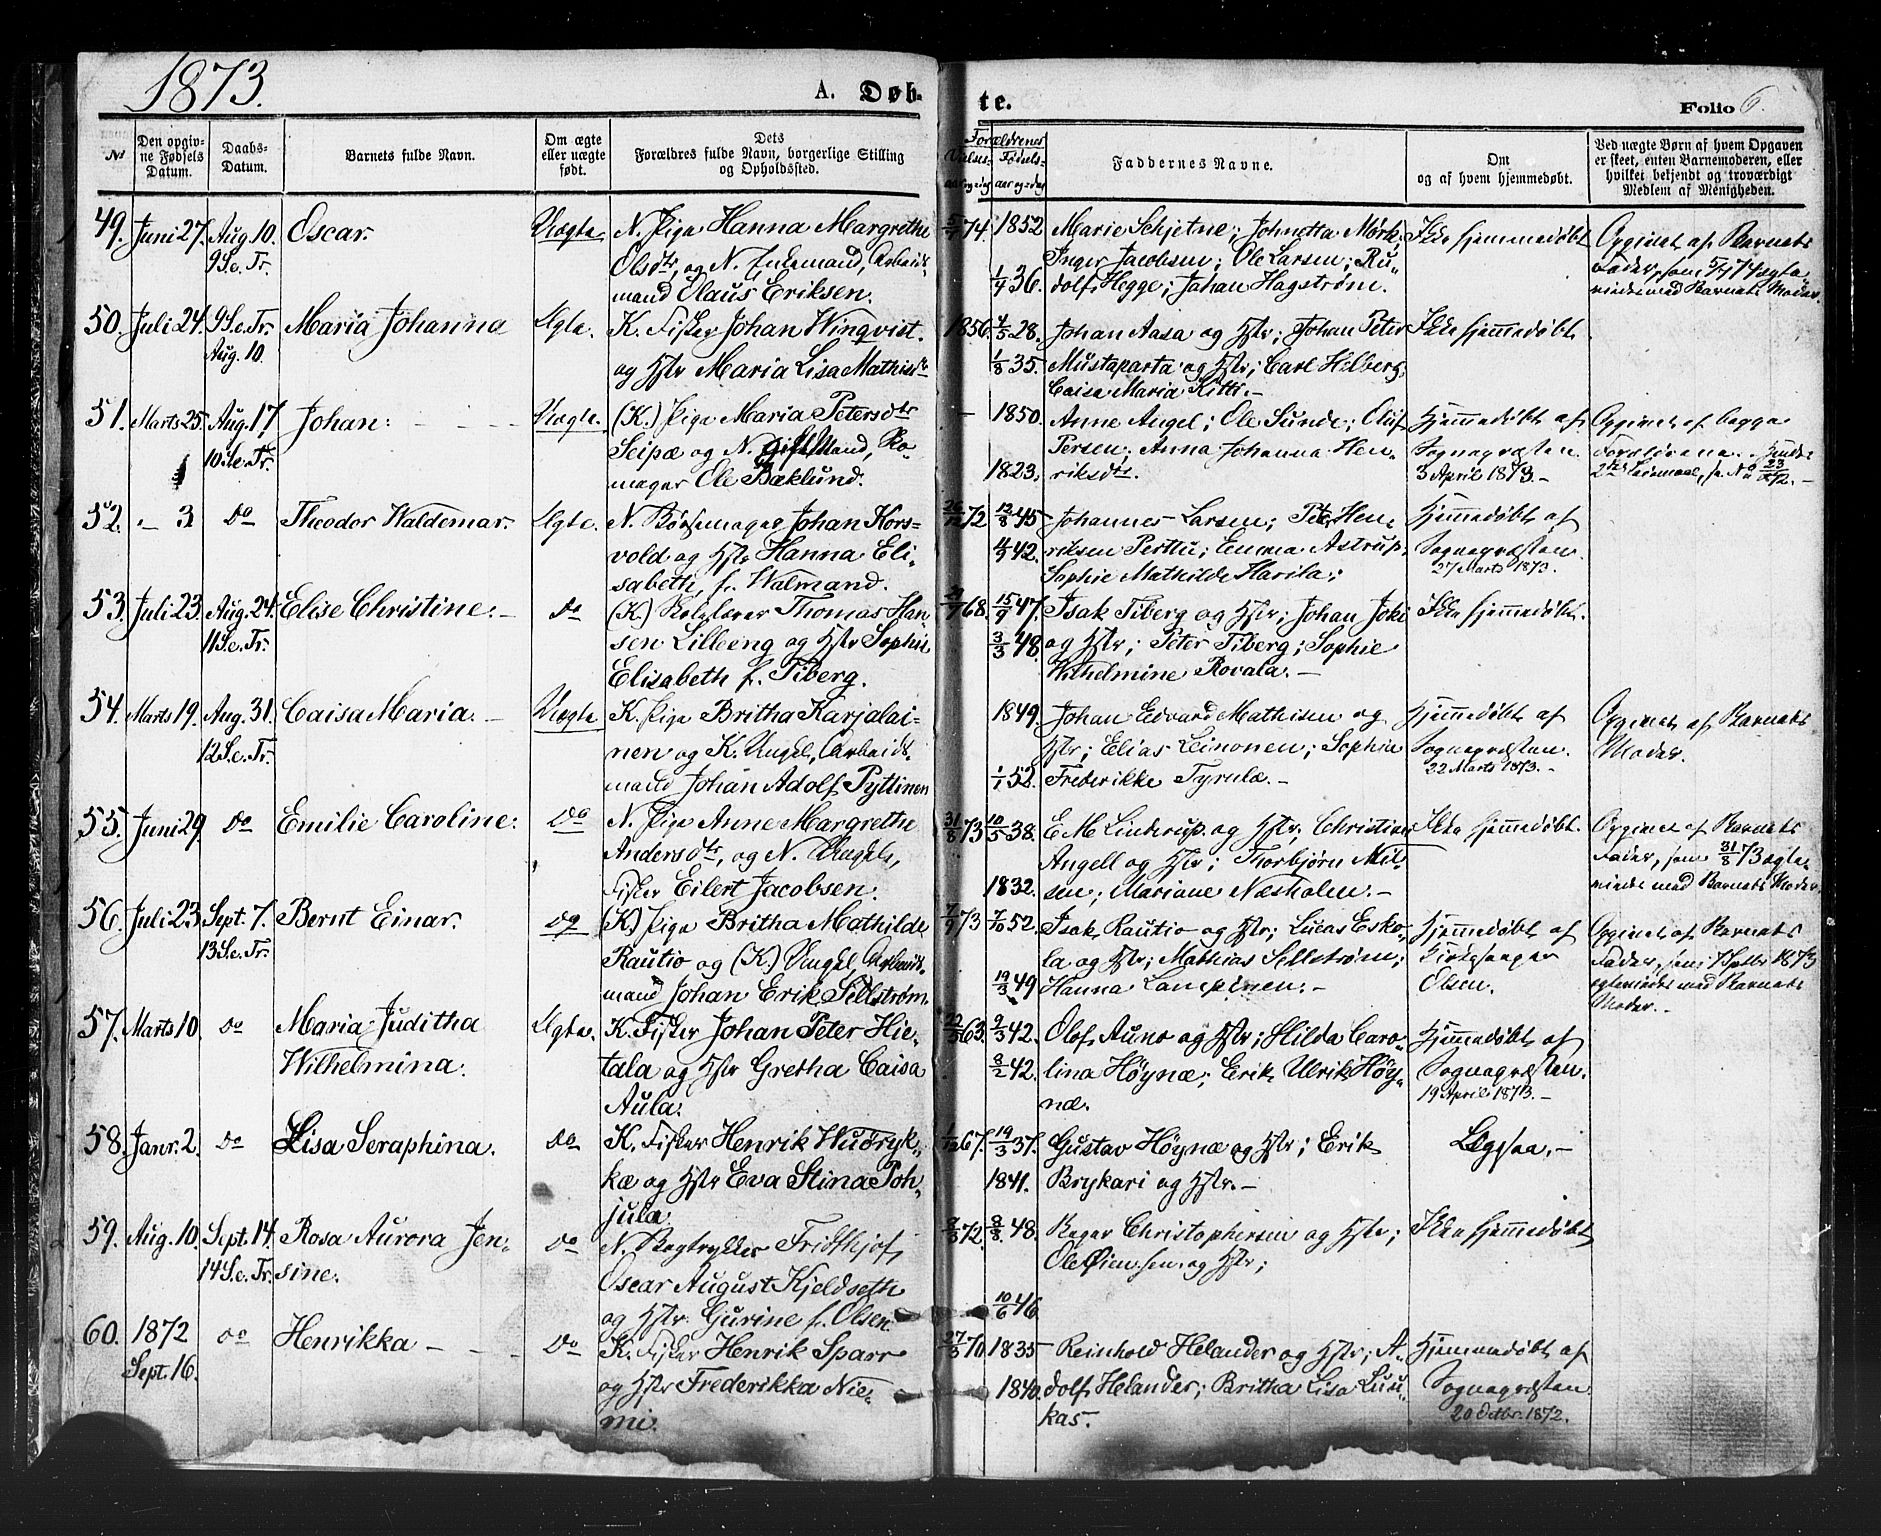 1873.
A. Døb-
te.
Folio 6.
№
Den opgiv-
ne Fødsels
Datum.
Daabs-
Datum.
Barnets fulde Navn.
Om ægte
eller uægte
født.
Dets
Forældres fulde Navn, borgerlige Stilling
og Opholdssted.
Forældrenes
Vielses-
aar og dag
Fødsels-
aar og dag
Faddernes Navne.
Om
og af hvem hjemmedøbt.
Ved uægte Børn af hvem Opgaven
er skeet, enten Barnemoderen, eller
hvilket bekjendt og troværdigt
Medlem af Menigheden.
49. Juni 27. Aug. 10. Oscar. Uægte. N. Pige Hanna Margrethe 5/7 74. 1852 Marie Schjetne; Johnetta Mørk; Ikke hjemmedøbt Opgivet af Barnets
9 S. e. Tr. Olsdtr, og N. Enkemand, Arbeids- Inger Jacobsen; Ole Larsen; Ru- Fader, som 5/7 74 ægte
mand Olaus Eriksen. 1/4 36. dolf Hegge; Johan Hagstrøm. viede med Barnets Moder.
50. Juli 24. 9 S. e. Tr. Maria Johanna Ægte. K. Fisker Johan Winqvist 1856. 4/5 28. Johan Aasa og Hstr; Johan Peter Ikke hjemmedøbt.
Aug. 10. og Hstr Maria Lisa Mathisdtr 1/8 35. Mustaparta og Hstr; Carl Hilberg;
Caisa Maria Kitti.-
51. Marts 25. Aug. 17. Johan: Uægte. (K.) Pige Maria Petersdtr - 1850. Anne Angel; Ole Sunde; Oluf Hjemmedøbt af Opgivet af begge
10 S. e. Tr. Seipæ og N. gift Mand, Ro- Persen; Anna Johanna Hen- Sognepræsten Forældrene. Hendes
mager Ole Bæklund. 1823. riksdtr. 3 April 1873.- 2det Leiermaal, se No 23/72.-
52. - 3 do Theodor Waldemar. Ægte. N. Bøssemager Johan Kors- 26/12 72 12/8 45 Johannes Larsen; Peter Hen- Hjemmedøbt af
vold og Hstr Hanna Eli- 4/9 42. riksen Perttu; Emma Astrup; Sognepræsten.
sabeth, f. Walmand. Sophie Mathilde Harila; 27 Marts 1873.
53. Juli 23. Aug. 24. Elise Christine: do (K.) Thomas Han- 68. 15/9 47. Isak Tiberg og Hstr; Johan Joki Ikke hjemmedøbt.
11 S. e. Tr. sen Lilleeng og Hstr Sophie 3/3 48. og Hstr; Peter Tiberg; Sophie
Elisabeth f. Tiberg. Wilhelmine Rovala.-
54. Marts 19. Aug. 31. Caisa Maria. Uægte K. Pige Britha Karjalai- 1849. Johan Edvard Mathisen og Hjemmedøbt af Opgivet af Barnets
12 S. e. Tr. nen og K. Ungk., Arbeids- Hstr; Elias Leinonen; Sophie Sognepræsten. Moder.
mand Johan Adolf Pyttinen 1/1 52. Frederikke Tyrulæ.- 22 Marts 1873.-
55. Juni 29. do Emilie Caroline: do N. Pige Anne Margrethe 31/8 73 10/5 38. E M Linderup og Hstr; Christian Ikke hjemmedøbt. Opgivet af Barnets
Andersdtr, og N. Ungk., Angell og Hstr; Thorbjørn Nil- Fader, som 31/8 73 ægte
Fisker Eilert Jacobsen. 1832. sen; Mariane Næsholen.- viede med Barnets Moder.
56. Juli 23. Sept. 7. Bernt Einar. do (K) Pige Britha Mathilde 7/9 73 7/10 52. Isak Rautio og Hstr; Lucas Esko- Hjemmedøbt af Opgivet af Barnets
13 S. e. Tr. Rautio og (K.) Ungk., Arbeids- la og Hstr; Mathias Sellstrøm; Kirkesanger Fader, som 7 Septbr 1873
mand Johan Erik Sellstrøm. 19/3 49 Hanna Lampinen.- Olsen. egteviedes med Barnets
Moder.-
57. Marts 10. do Maria Juditha Ægte. K. Fisker Johan Peter Hie- 63. 2/3 42. Olof Auno og Hstr; Hilda Caro- Hjemmedøbt af
Wilhelmina. tala og Hstr Gretha Caisa 8/2 42. lina Høynæ; Erik Ulrik Høy- Sognepræsten.
Aula. næ. 19 April 1873.-
58. Janr. 2. do Lisa Seraphina. do K. Fisker Henrik Wuøryk- 67. 19/3 37. Gustav Høynæ og Hstr; Erik Ligesaa.-
kæ og Hstr Eva Stina Poh- 1841. Brykari og Hstr.-
jula.
59. Aug. 10. Sept. 14. Rosa Aurora Jen- do N. Bogtrykker Fridthjof 72. 8/8 48. Christophersen og Hstr; Ikke hjemmedøbt
14 S. e. Tr. sine. Oscar August Kjeldseth Ole Øiensen og Hstr;
og Hstr Gurine f. Olsen. 10/6 46.
60. 1872 do Henrikka - do K. Fisker Henrik Sparr 27/3 70. 1835 Reinhold Helander og Hstr; A- Hjemmedøbt af
Sept. 16. og Hstr Frederikka Nie- 1840. dolf Helander; Britha Lisa Luu- Sognepræsten
mi. kas. 20 Octbr. 1872.